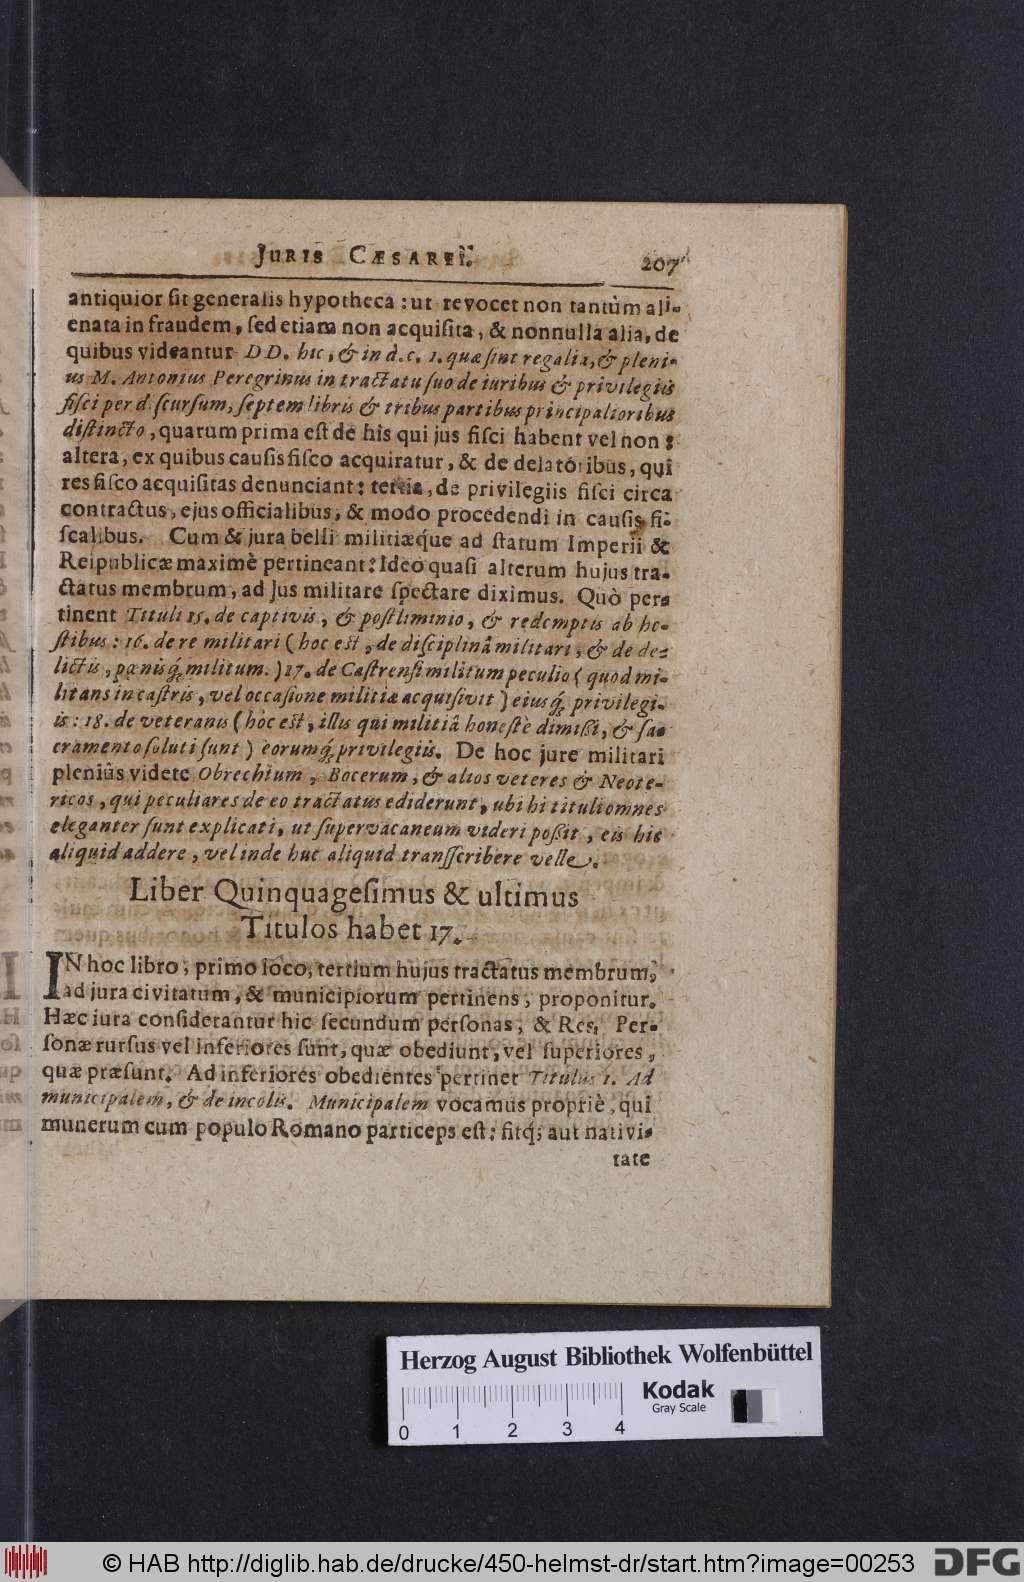 Juris Cæsarei. 207
antiquior ſit generalis hypotheca: ut revocet non tantùm ali-
enata in fraudem, ſed etiam non acquiſita, & nonnulla alia, de
quibus videantur DD. hîc, & in d. c. 1. quæ ſint regalia, & pleni-
us M. Antonius Peregrinus in tractatu ſuo de iuribus & privilegiis
fiſci per diſcurſum, ſeptem libris & tribus partibus principalioribus
diſtincto, quarum prima eſt de his qui jus fiſci habent vel non:
altera, ex quibus cauſis fiſco acquiratur, & de delatoribus, qui
res fiſco acquiſitas denunciant: tertia, de privilegiis fiſci circa
contractus, ejus officialibus, & modo procedendi in cauſis fi-
ſcalibus. Cum & jura belli militiæq́ue ad ſtatum Imperii &
Reipublicæ maximè pertineant: Ideo quaſi alterum hujus tra-
ctatus membrum, ad Jus militare ſpectare diximus. Quò per-
tinent Tituli 15. de captivis, & poſtliminio, & redemptis ab ho-
ſtibus: 16. de re militari (hoc eſt, de diſciplinâ militari, & de de-
lictis, pœnisq́; militum.) 17. de Caſtrenſi militum peculio (quod mi-
litans in caſtris, vel occaſione militiæ acquiſivit) eiusq́; privilegi-
is: 18. de veteranis (hoc eſt, illis qui militiâ honeſtè dimißi, & ſa-
cramento ſoluti ſunt) eorumq́; privilegiis. De hoc jure militari
pleniùs videte Obrechtum, Bocerum, & alios veteres & Neote-
ricos, qui peculiares de eo tractatus ediderunt, ubi hi tituli omnes
eleganter ſunt explicati, ut ſupervacaneum videri poßit, eis hic
aliquid addere, vel inde huc aliquid tranſſcribere velle.
Liber Quinquageſimus & ultimus
Titulos habet 17.
IN hoc libro, primo loco, tertium hujus tractatus membrum,
ad jura civitatum, & municipiorum pertinens, proponitur.
Hæc iura conſiderantur hic ſecundum perſonas, & Res. Per-
ſonæ rurſus vel inferiores ſunt, quæ obediunt, vel ſuperiores,
quæ præſunt. Ad inferiores obedientes pertinet Titulus 1. Ad
municipalem, & de incolis. Municipalem vocamus propriè, qui
munerum cum populo Romano particeps eſt: fitq́; aut nativi-
tate
Herzog August Bibliothek Wolfenbüttel
Kodak
Gray Scale
0 1 2 3 4
© HAB http://diglib.hab.de/drucke/450-helmst-dr/start.htm?image=00253 DFG